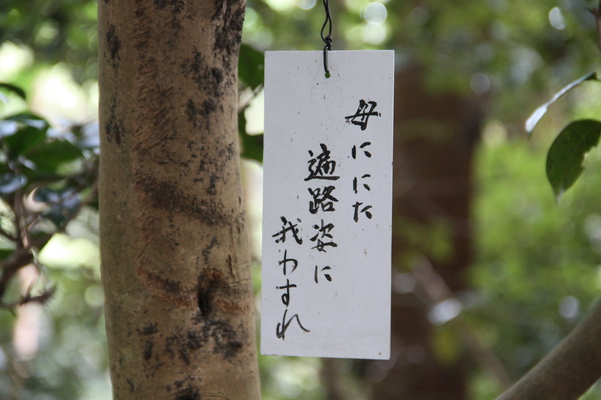 母ににた
遍路姿に
我わすれ